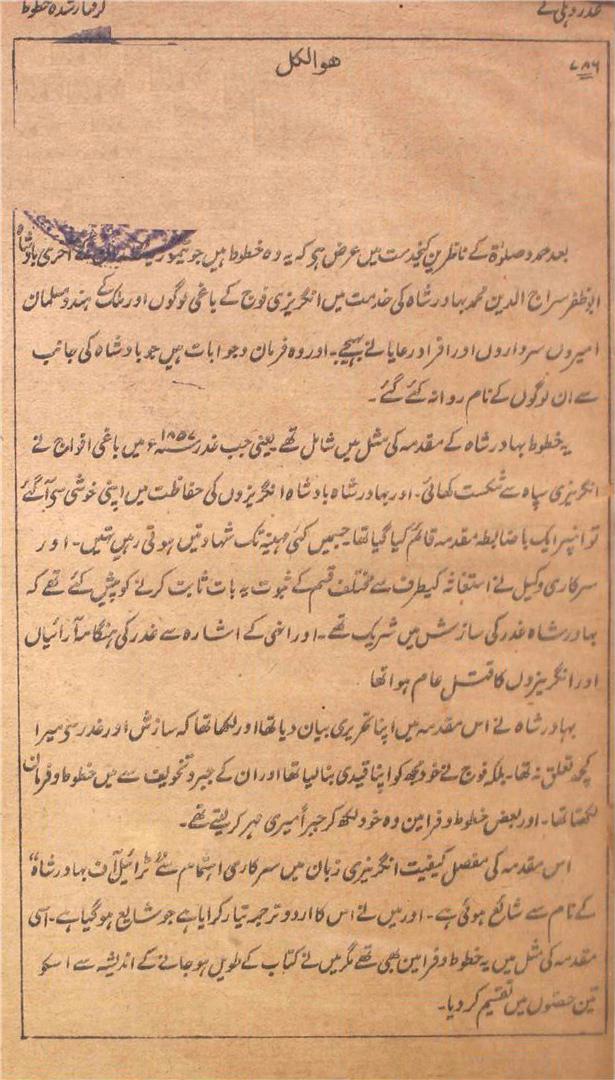 غدر دہلی کے گرفتار شدہ خطوط
۷۸۶
ھوالکل
بعد حمد و صلوٰۃ کے ناظرین کیخدمت میں عرض ہی کہ یہ وہ خطوط ہیں جو کے آخری بادشاہ
ابوظفر سراج الدین محمد بہادر شاہ کی خدمت میں انگریزی فوج کے باغی لوگوں اور ملک کے ہندو مسلمان
امیروں سرداروں اور افراد رعایا نے بہیجے۔ اور وہ فرمان و جوابات ہیں جو بادشاہ کی جانب
سے ان لوگوں کے نام روانہ کئے گئے۔
یہ خطوط بہادر شاہ کے مقدمہ کی مثل میں شامل تھے یعنی جب غدر ۱۸۵۷ء میں باغی افواج نے
انگریزی سپاہ سے شکست کھائی۔ اور بہادر شاہ بادشاہ انگریزوں کی حفاظت میں اپنی خوشی سی آگئے
تو انپر ایک باضابطہ مقدمہ قائم کیا گیا تھا۔ جسمیں کئی مہینہ تک شہادتیں ہوتی رہیں تہیں۔ اور
سرکاری وکیل نے استغاثہ کیطرف سے مختلف قسم کے ثبوت یہ بات ثابت کرنے کو پیش کئے تھے کہ
بہادر شاہ غدر کی سازش میں شریک تھے۔ اور انہی کے اشارہ سے غدر کی ہنگامہ آرائیاں
اور انگریزوں کا قتل عام ہوا تھا
بہادر شاہ نے اس مقدمہ میں اپنا تحریری بیان دیا تھا اور لکھا تھا کہ سازش اور غدر سی میرا
کچھ تعلق نہ تھا۔ بلکہ فوج نے خود مجھ کو اپنا قیدی بنا لیا تھا اور ان کے جبر و تخویف سے میں خطوط و فرمان
لکھتا تھا۔ اور بعض خطوط و فرامین وہ خود لکھ کر جبراً میری مہر کر لیتے تھے۔
اس مقدمہ کی مفصل کیفیت انگریزی زبان میں سرکاری اہتمام سے "ٹرائیل آف بہادر شاہ"
کے نام سے شائع ہوئی ہے۔ اور میں نے اس کا اردو ترجمہ تیار کرایا ہے جو شایع ہو گیا ہے۔ اسی
مقدمہ کی مثل میں یہ خطوط و فرامین بھی تھے مگر میں نے کتاب کے طویل ہو جانے کے اندیشہ سے اسکو
تین حصوں میں تقسیم کر دیا۔